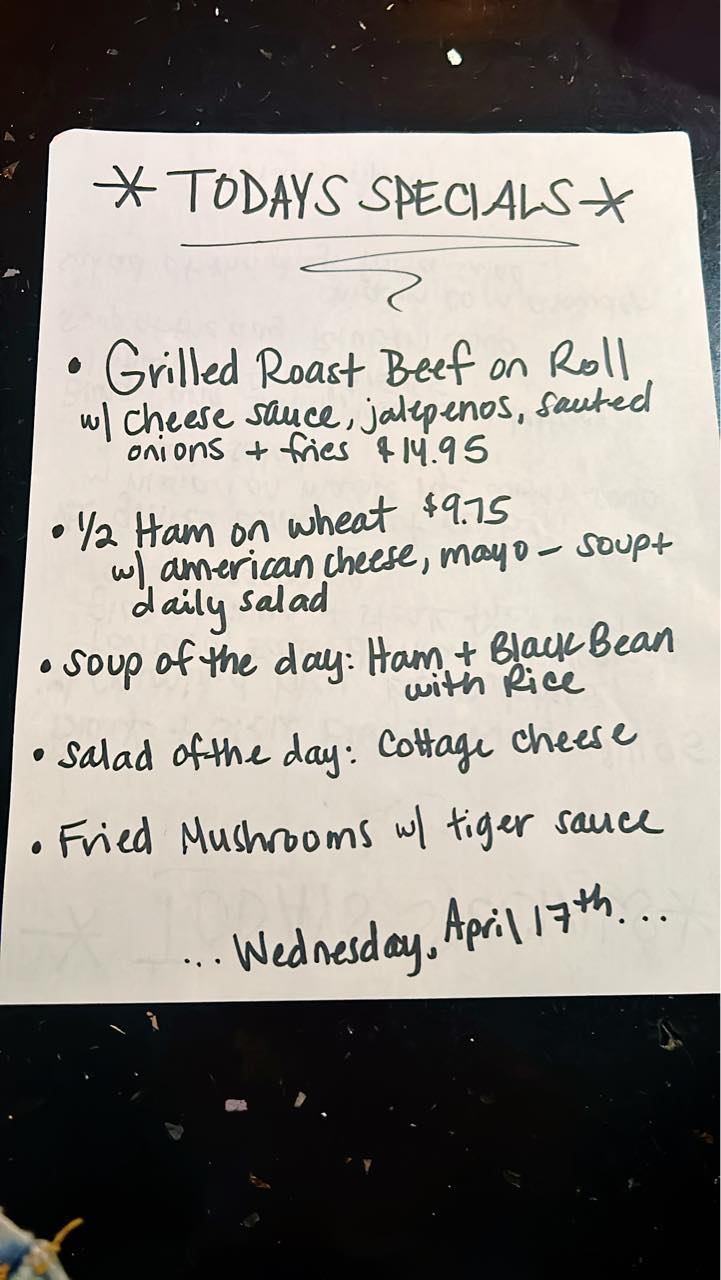 * TODAYS SPECIALS *
• Grilled Roast Beef on Roll
w/ cheese sauce, jalepenos, sauted
onions + fries $14.95
• 1/2 Ham on wheat $9.75
w/ american cheese, mayo – soup +
daily salad
• soup of the day: Ham + Black Bean
with Rice
• salad of the day: Cottage cheese
• Fried Mushrooms w/ tiger sauce
... Wednesday, April 17th...